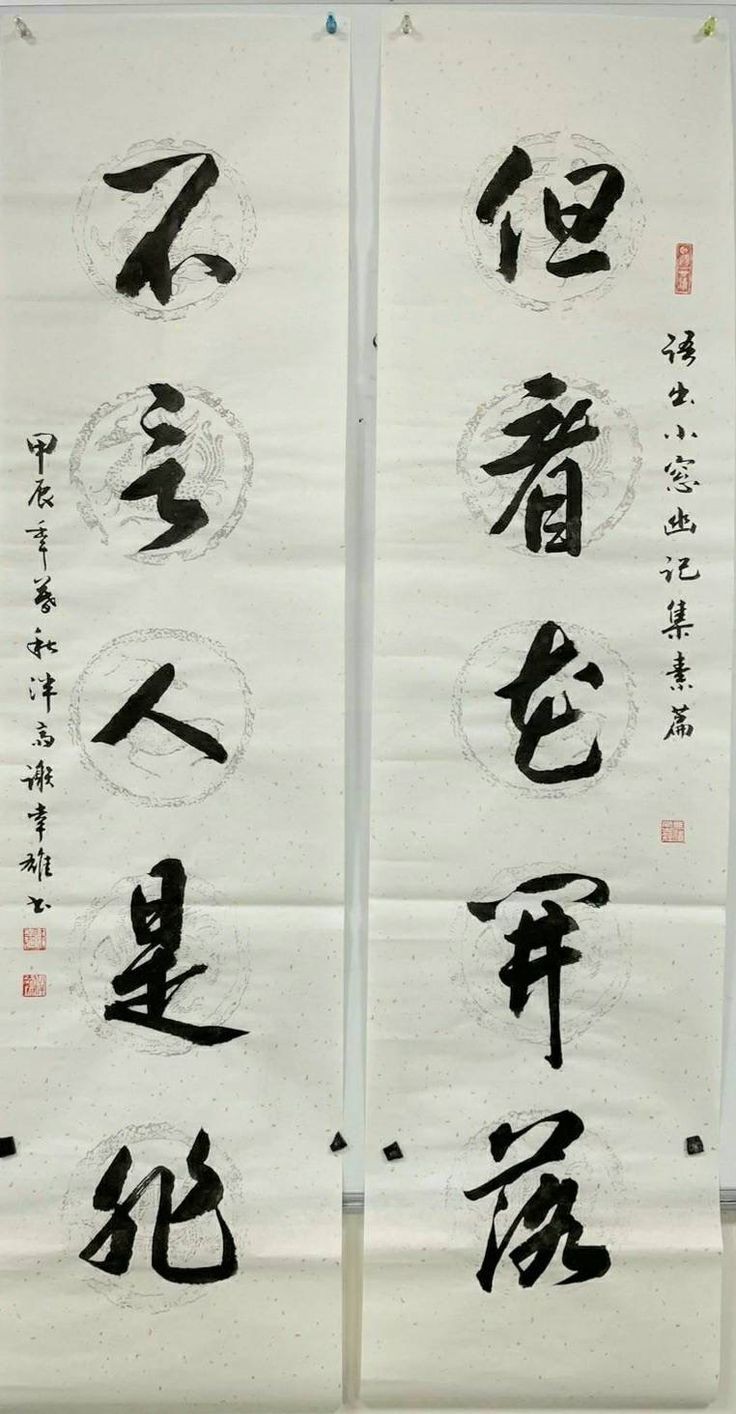 语出小窗幽记集素篇
但看花開落
不言人是非
甲辰年暮秋泮高谢幸雄书